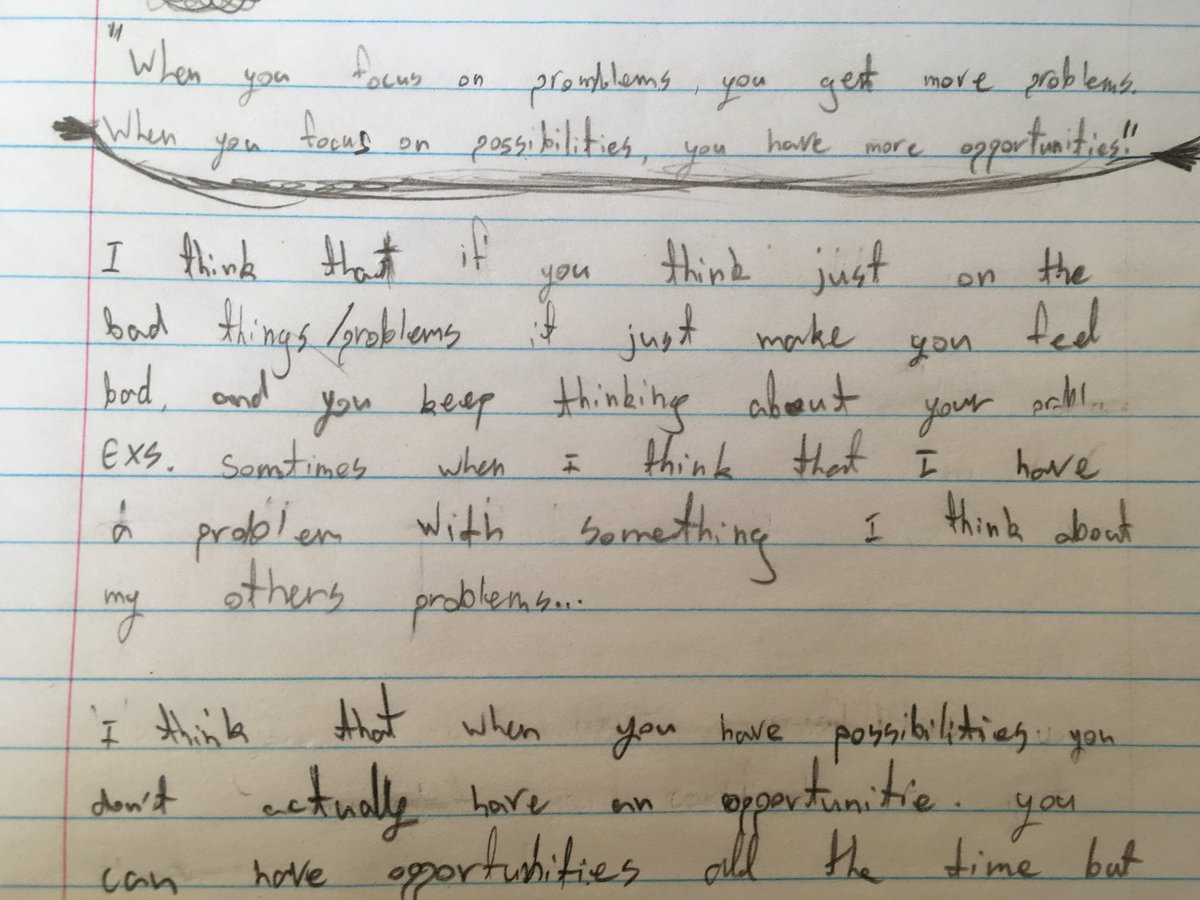 "When you focus on promblems, you get more problems.
When you focus on possibilities, you have more opportunities."
I think that if you think just on the
bad things/problems it just make you feel
bad, and you keep thinking about your probl..
Exs. somtimes when I think that I have
a problem with something I think about
my others problems...
I think that when you have possibilities you
don't actually have an opportunitie. you
can have opportunities all the time but